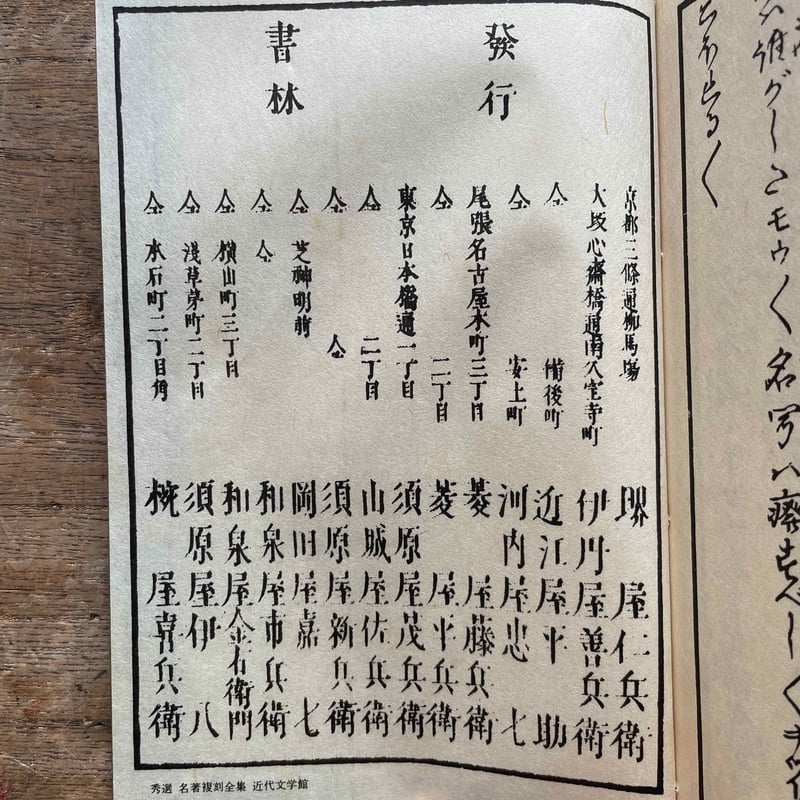 發行
書林
京都三條通柳馬場 堺屋仁兵衛
大坂心齋橋通南久宝寺町 伊丹屋善兵衛
仝 備後町 近江屋平助
仝 安土町 河内屋忠七
尾張名古屋本町三丁目 菱屋藤兵衛
仝 二丁目 菱屋平兵衛
東京日本橋通一丁目 須原屋茂兵衛
仝 二丁目 山城屋佐兵衛
仝 仝 須原屋新兵衛
仝 芝神明前 岡田屋嘉七
仝 仝 和泉屋市兵衛
仝 横山町三丁目 和泉屋金右衛門
仝 淺草茅町二丁目 須原屋伊八
仝 本石町二丁目角 椀屋喜兵衛
秀選 名著複刻全集 近代文学館